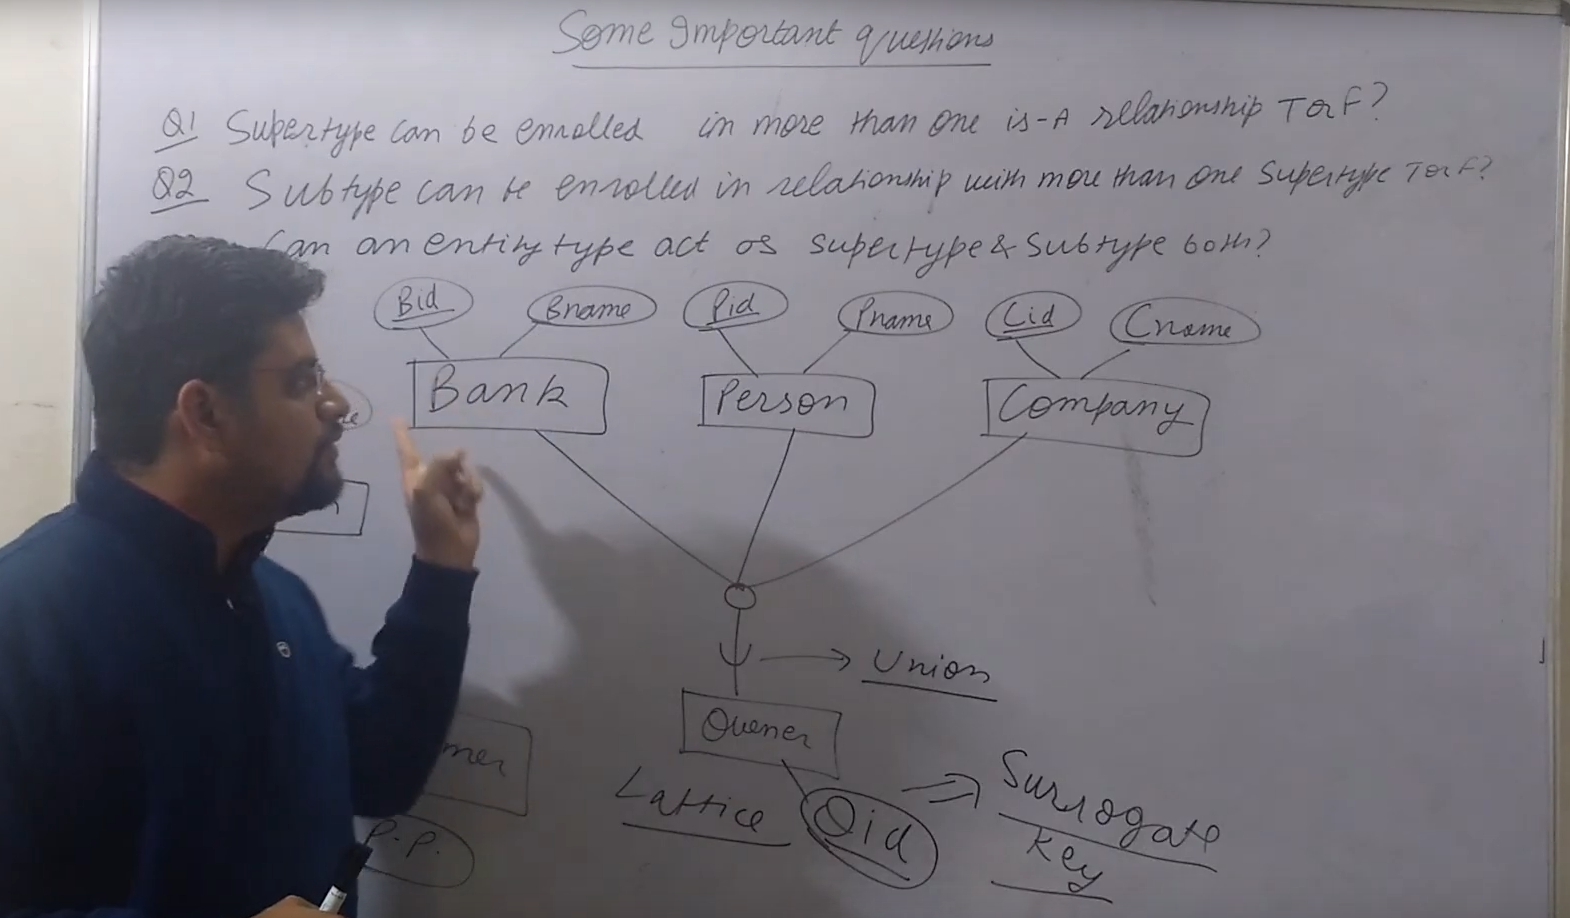 Some Important questions
Q1 Supertype can be enrolled in more than one is-A relationship T or F?
Q2 Subtype can be enrolled in relationship with more than one Supertype T or F?
Can an entity type act as supertype & subtype both?
Bid Bname Pid Pname Cid Cname
Bank Person Company
Union
Owner
Lattice Oid Surrogate
Key
P.P.